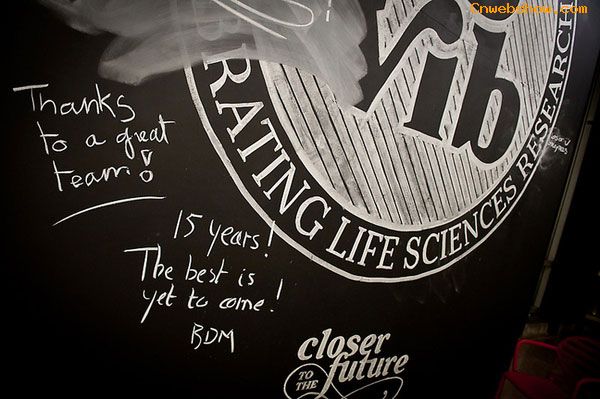 Cnwebshow.com
vib
BRATING LIFE SCIENCES RESEARCH
Thanks
to a great
team!
15 years!
The best is
yet to come!
BDM
closer
TO THE future